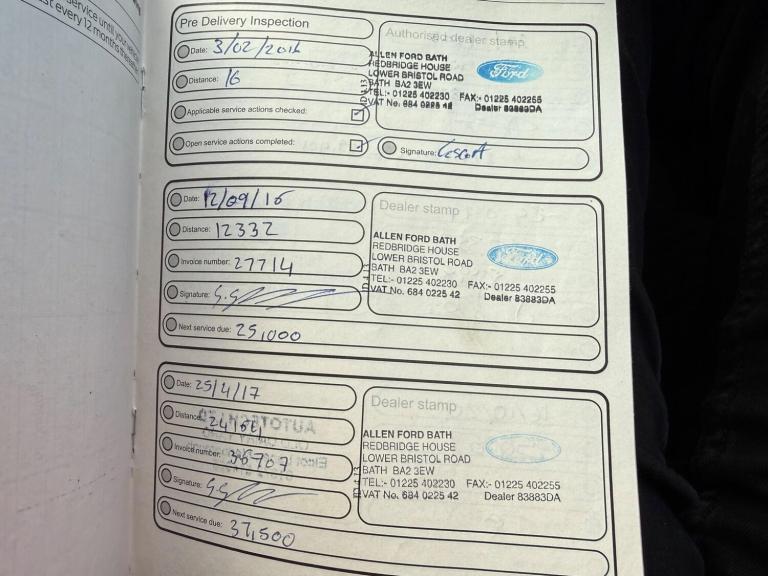 service until you
st every 12 months
Pre Delivery Inspection
Date: 3/02/2016
Distance: 16
Applicable service actions checked:
Open service actions completed:
Authorised dealer stamp
ALLEN FORD BATH
REDBRIDGE HOUSE
LOWER BRISTOL ROAD
BATH BA2 3EW
TEL:- 01225 402230 FAX:- 01225 402255
VAT No. 684 0225 42 Dealer 83883DA
Ford
Signature:
Date: 12/09/16
Distance: 12332
Invoice number: 27714
Signature:
Next service due: 25,000
Dealer stamp
ALLEN FORD BATH
REDBRIDGE HOUSE
LOWER BRISTOL ROAD
BATH BA2 3EW
TEL:- 01225 402230 FAX:- 01225 402255
VAT No. 684 0225 42 Dealer 83883DA
Ford
Date: 25/4/17
Distance:
Invoice number: 36707
Signature:
Next service due: 37,500
Dealer stamp
ALLEN FORD BATH
REDBRIDGE HOUSE
LOWER BRISTOL ROAD
BATH BA2 3EW
TEL:- 01225 402230 FAX:- 01225 402255
VAT No. 684 0225 42 Dealer 83883DA